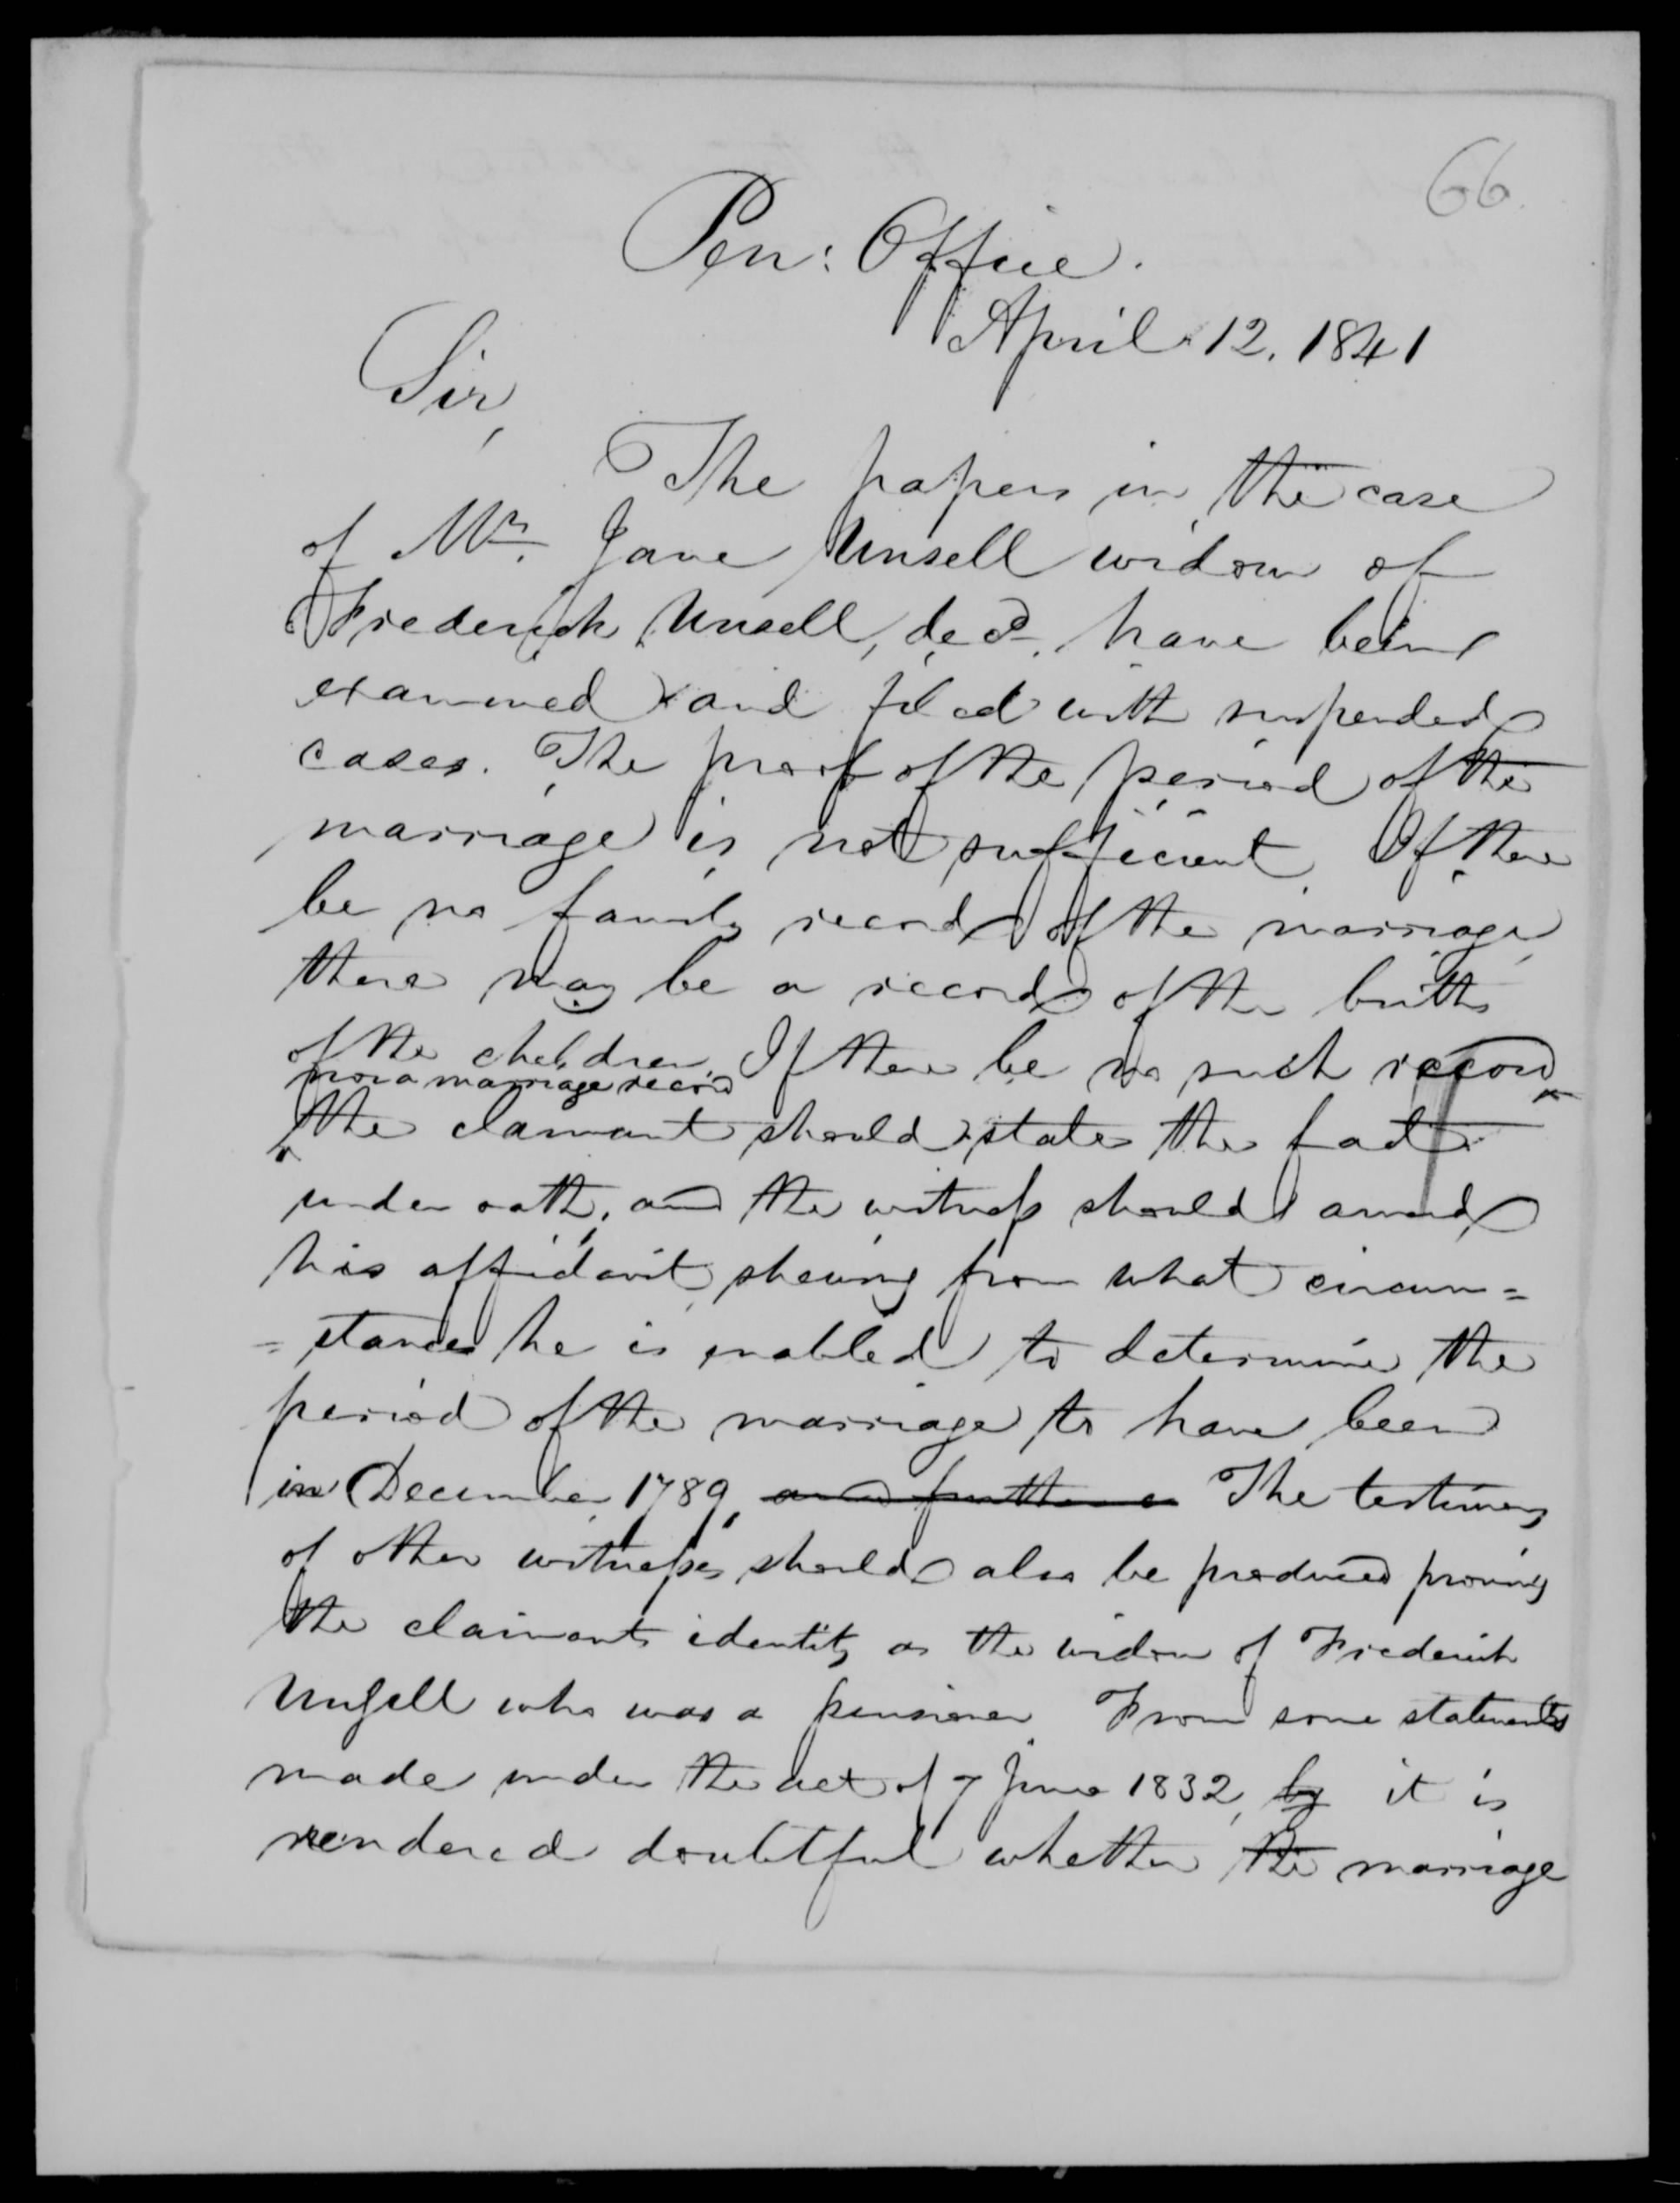 66.
Pen: Office.
April 12. 1841
Sir,
The papers in the case
of Mrs. Jane Unsell widow of
Frederick Unsell, decd. have been
examined and filed with suspended
cases. The proof of the period of the
marriage is not sufficient. If there
be no family record of the marriage,
there may be a record of the births
of the children. If there be no such record
nor a marriage record
the claimant should state the fact
under oath, and the witness should amend
his affidavit shewing from what circum=
=stances he is enabled to determine the
period of the marriage to have been
in December 1789, and further The testimony
of other witnesses should also be produced proving
the claimants identity as the widow of Frederick
Unsell who was a pensioner. From some statements
made under the act of 7 June 1832, by it is
rendered doubtful whether the marriage